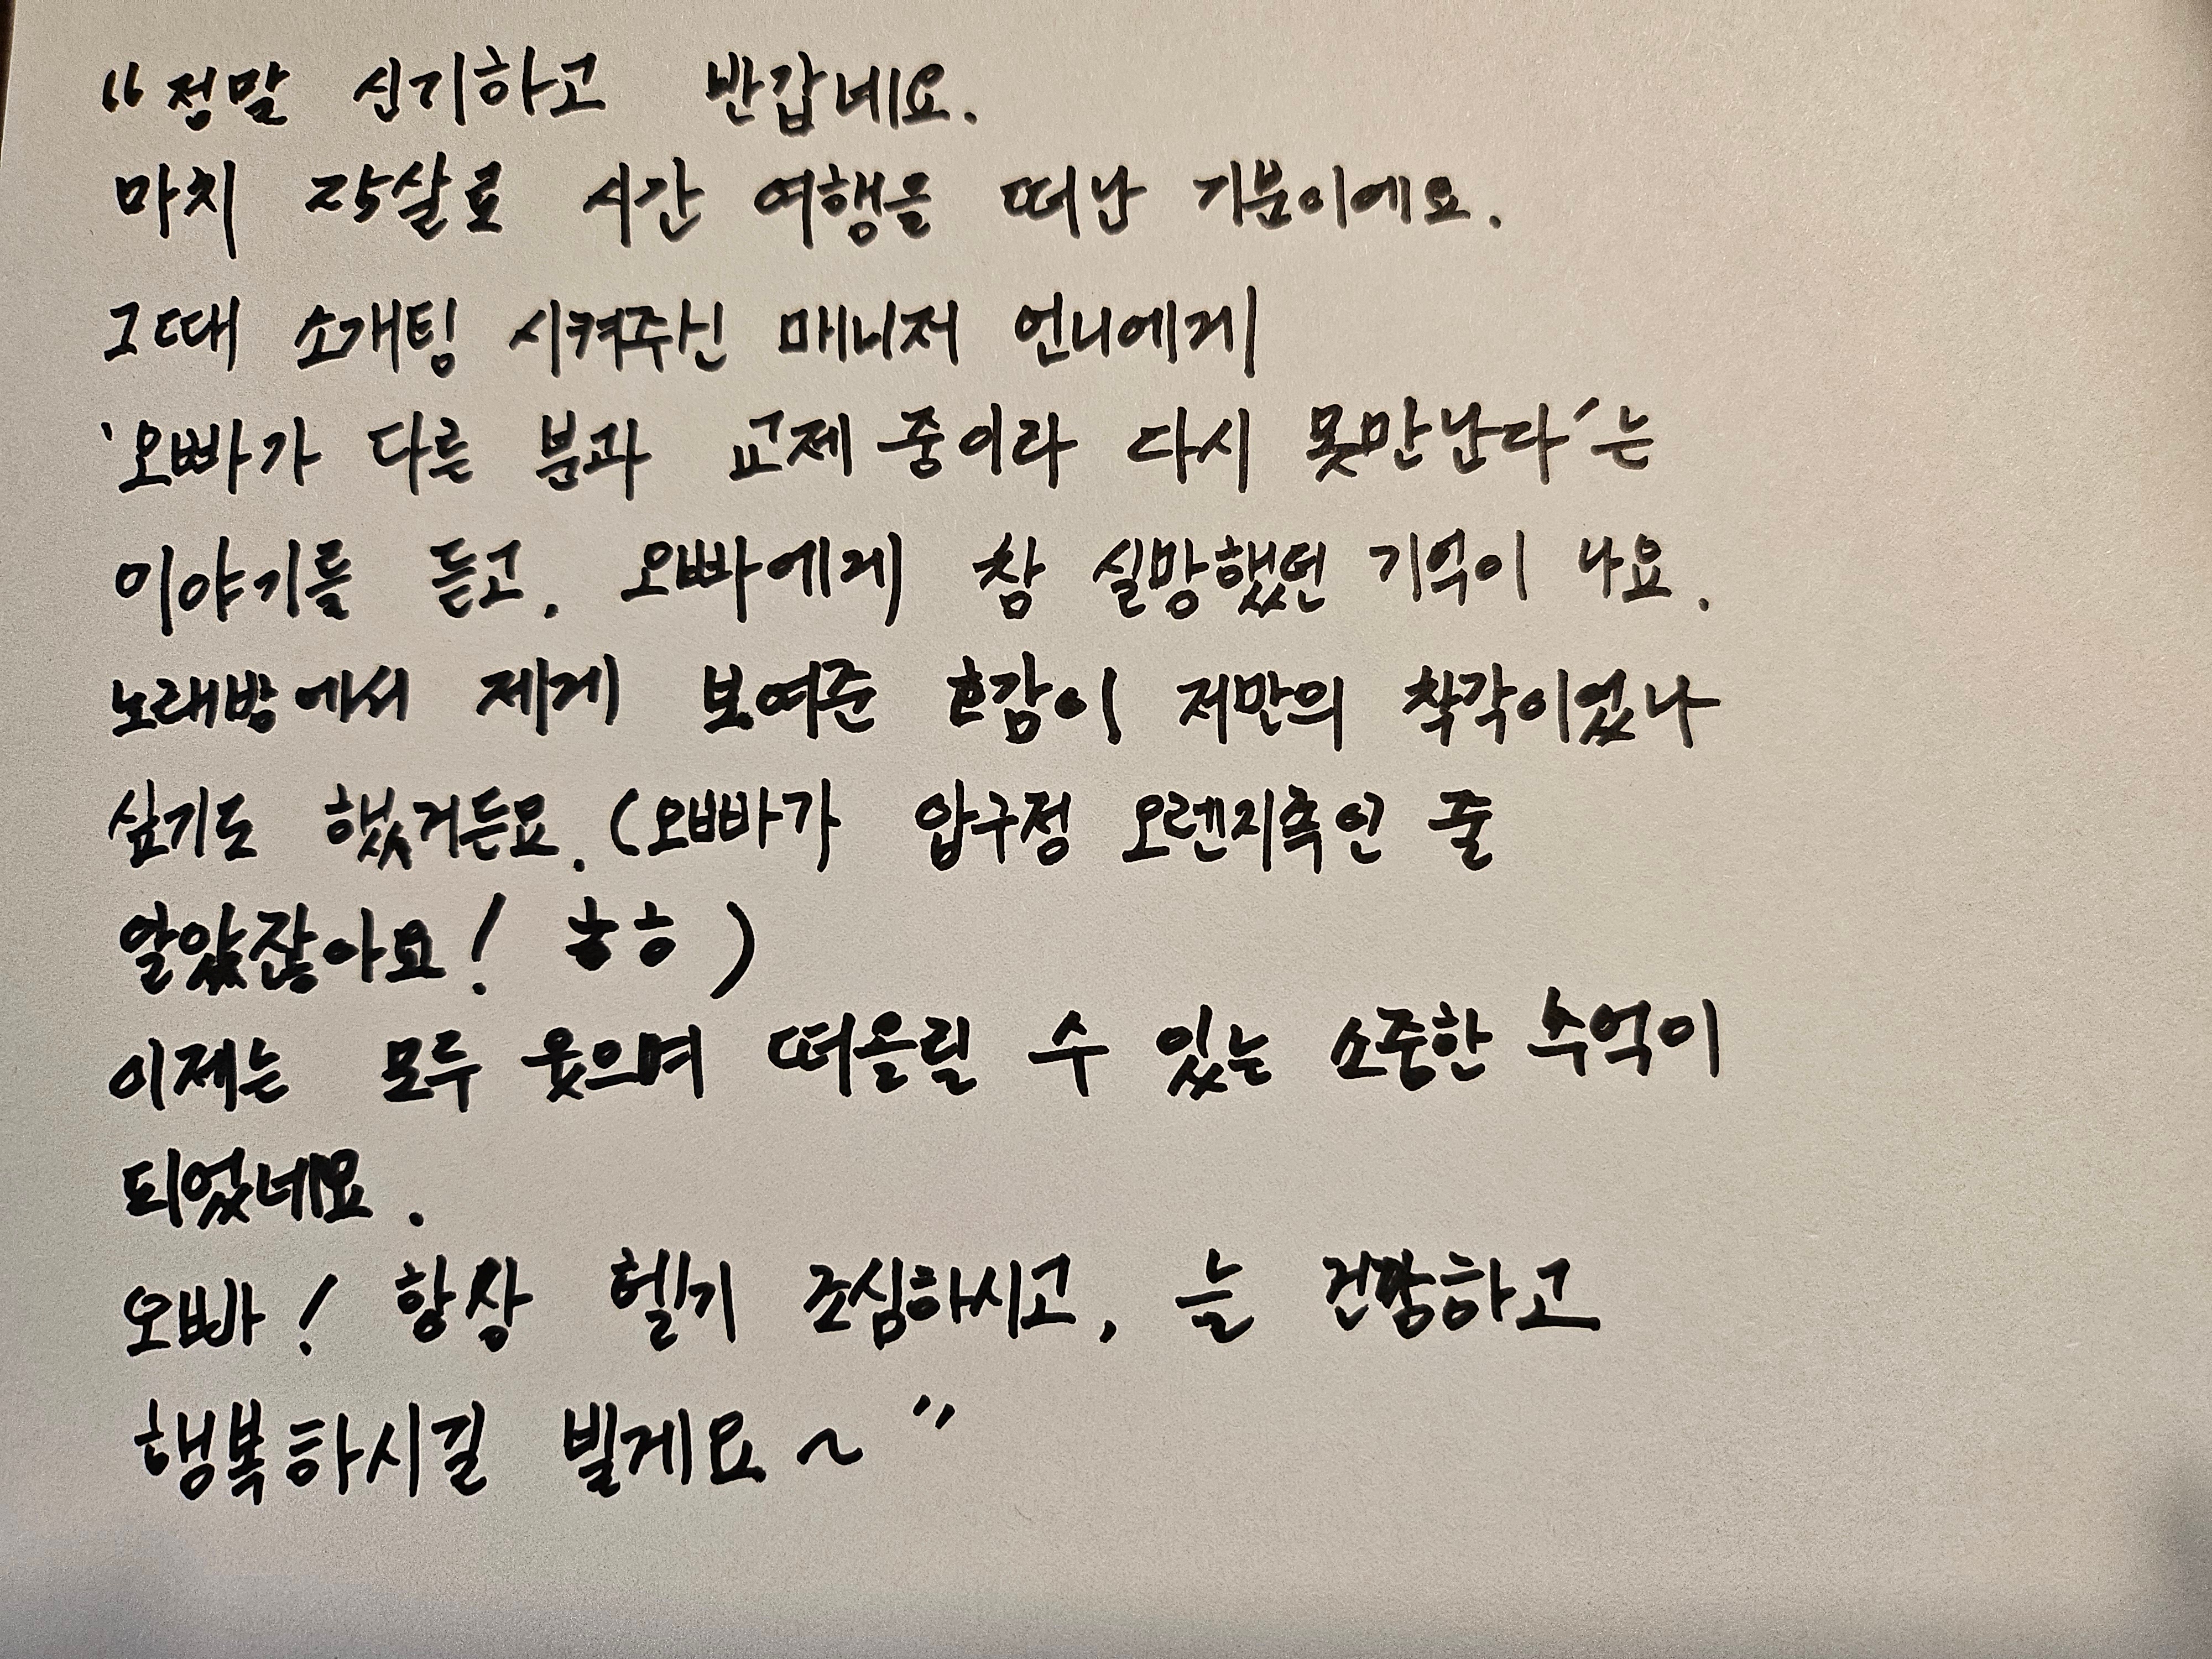 “정말 신기하고 반갑네요.
마치 25살로 시간 여행을 떠난 기분이에요.
그때 소개팅 시켜주신 매니저 언니에게
‘오빠가 다른 분과 교제 중이라 다시 못만난다’는
이야기를 듣고, 오빠에게 참 실망했던 기억이 나요.
노래방에서 제게 보여준 호감이 저만의 착각이었나
싶기도 했거든요. (오빠가 압구정 오렌지족인 줄
알았잖아요! ㅎㅎ)
이제는 모두 웃으며 떠올릴 수 있는 소중한 추억이
되었네요.
오빠! 항상 헬기 조심하시고, 늘 건강하고
행복하시길 빌게요~”